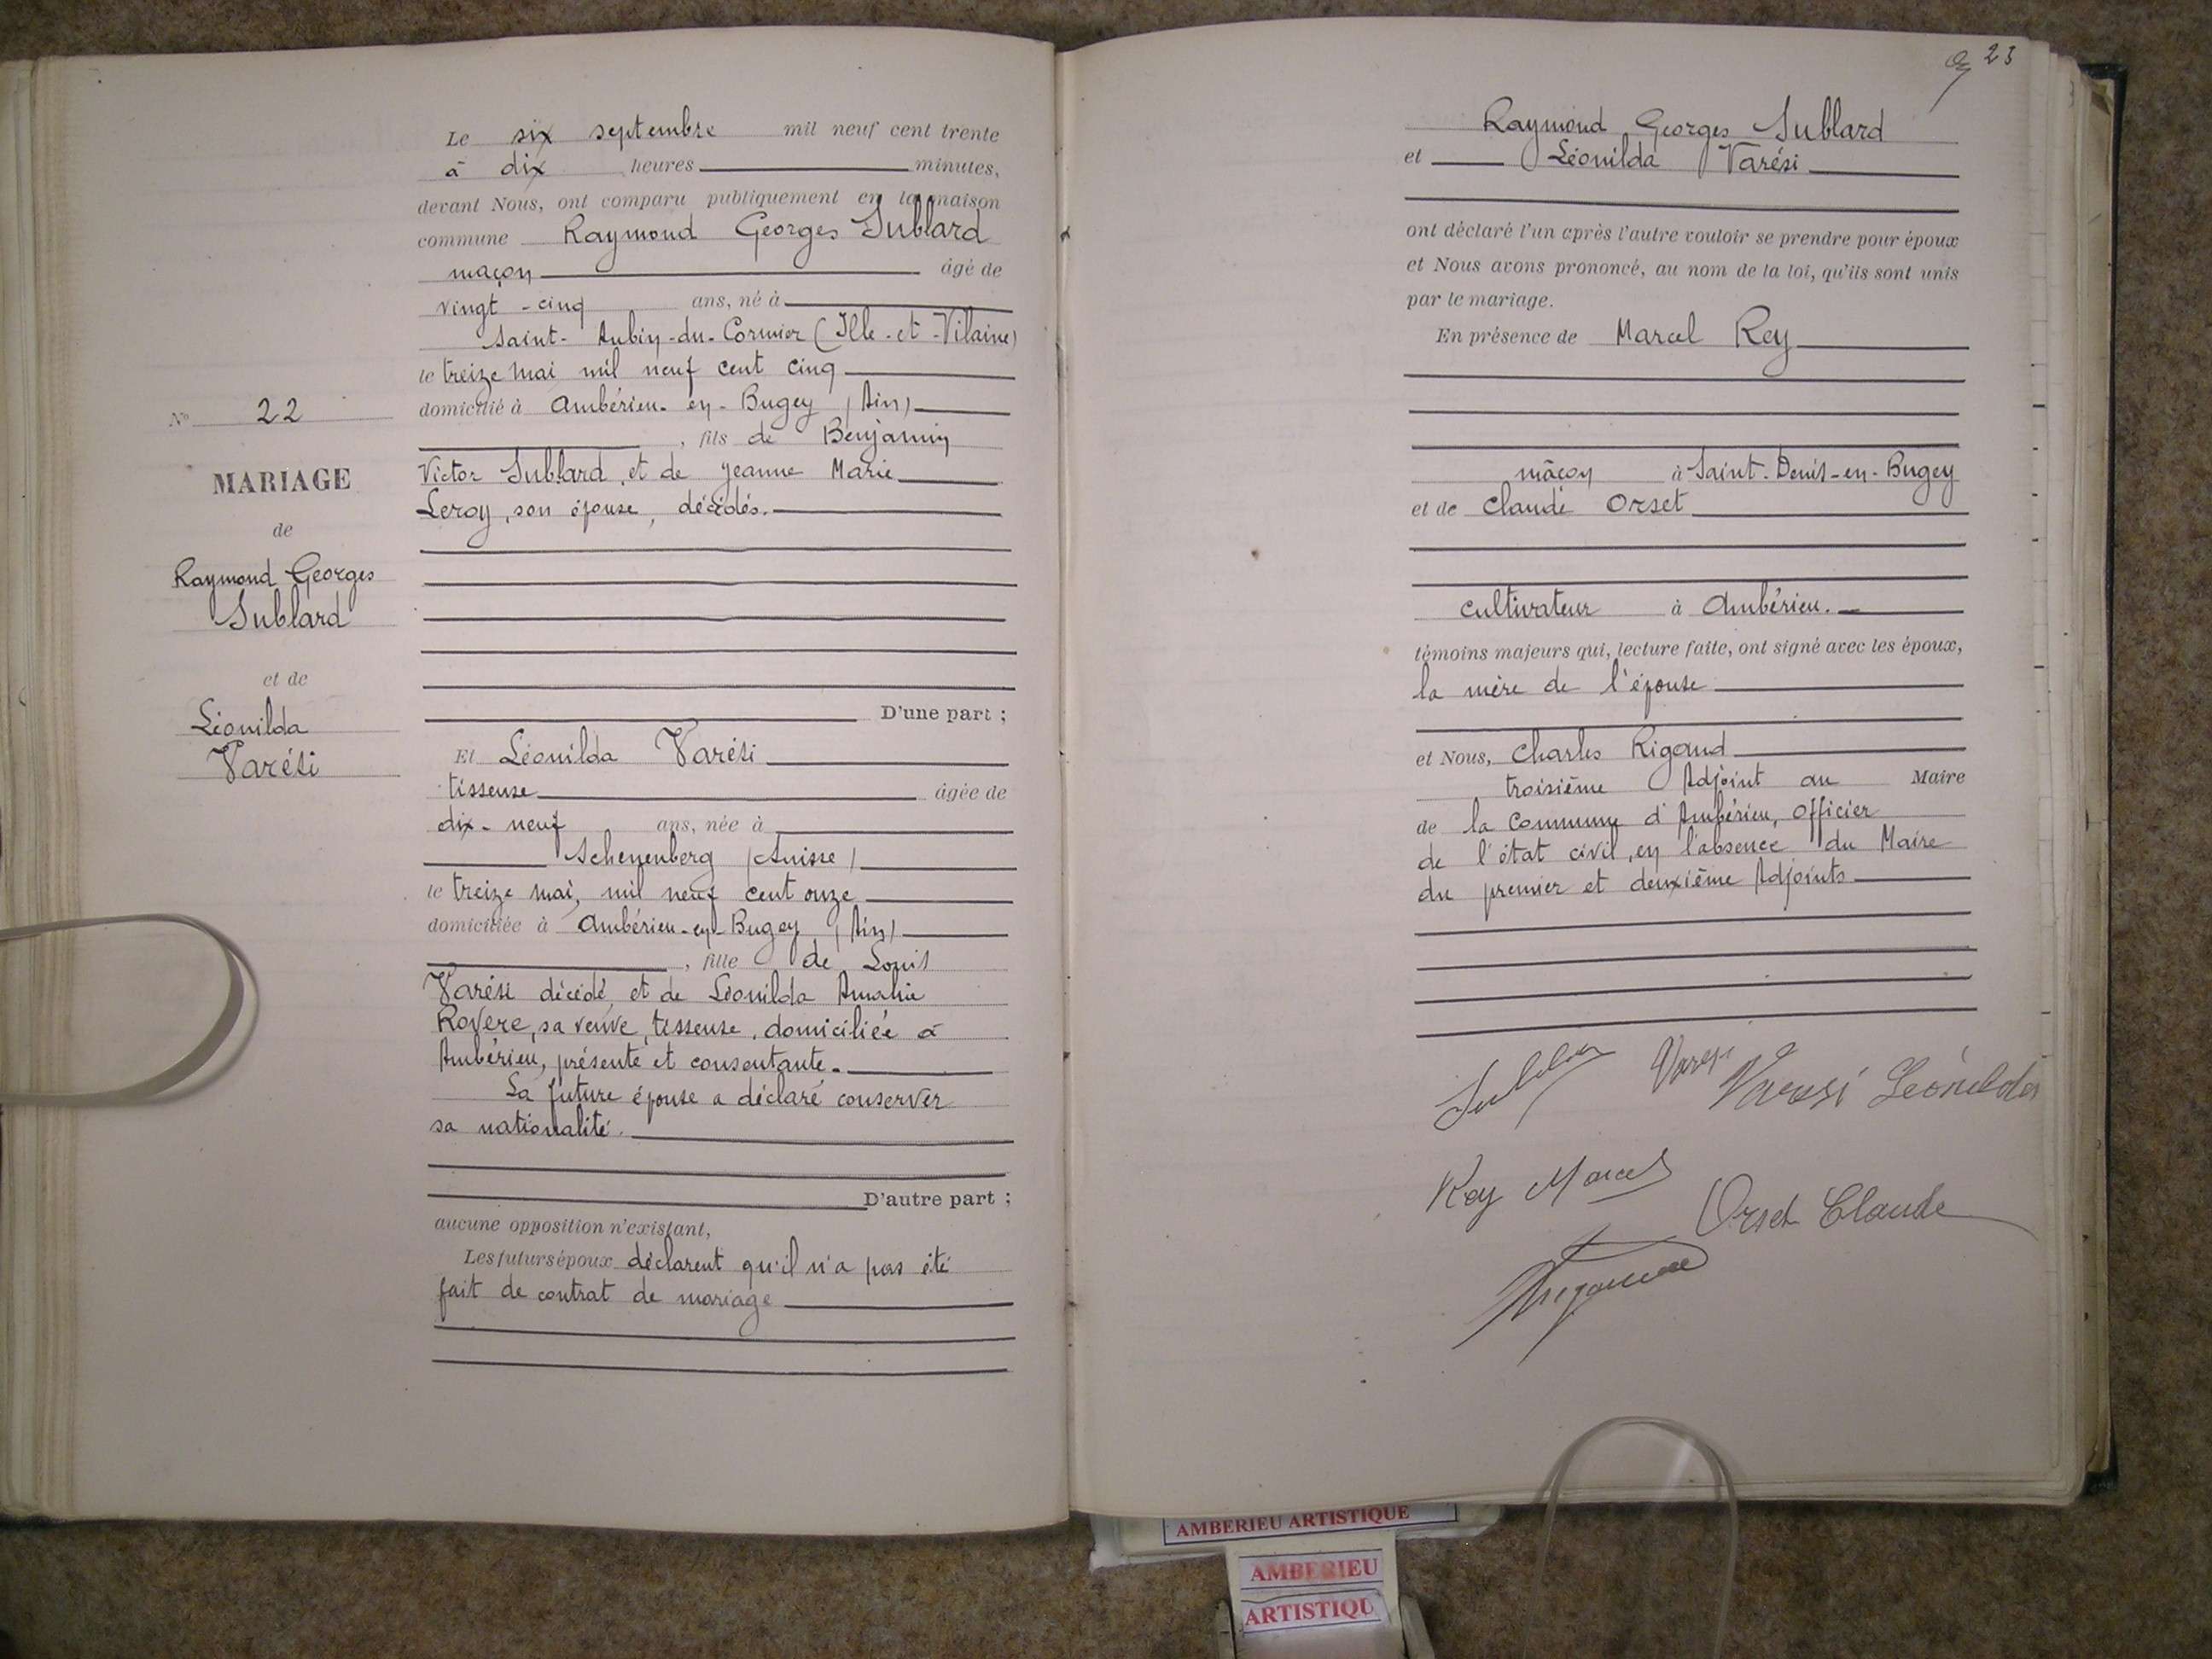 Le six septembre mil neuf cent trente
à dix heures minutes,
devant Nous, ont comparu publiquement en la maison
commune Raymond Georges Sublard
maçon âgé de
vingt-cinq ans, né à
Saint-Aubin-du-Cormier (Ille-et-Vilaine)
le treize mai mil neuf cent cinq
domicilié à Ambérieu-en-Bugey (Ain)
, fils de Benjamin
Victor Sublard, et de Jeanne Marie
Leroy, son épouse, décédés.
N° 22
MARIAGE
de
Raymond Georges
Sublard
et de
Léonilda
Varési
D'une part ;
Et Léonilda Varési
tisseuse âgée de
dix-neuf ans, née à
Schenenberg (Suisse)
le treize mai, mil neuf cent onze
domiciliée à Ambérieu-en-Bugey (Ain)
, fille de Louis
Varési décédé, et de Léonilda Amalia
Rovere, sa veuve, tisseuse, domiciliée à
Ambérieu, présente et consentante.
La future épouse a déclaré conserver
sa nationalité.
D'autre part ;
aucune opposition n'existant,
Les futurs époux déclarent qu'il n'a pas été
fait de contrat de mariage
23
Raymond Georges Sublard
et Léonilda Varési
ont déclaré l'un après l'autre vouloir se prendre pour époux
et Nous avons prononcé, au nom de la loi, qu'ils sont unis
par le mariage.
En présence de Marcel Rey
mâçon à Saint-Denis-en-Bugey
et de Claude Orset
cultivateur à Ambérieu.
témoins majeurs qui, lecture faite, ont signé avec les époux,
la mère de l'épouse
et Nous, Charles Rigaud
troisième Adjoint au Maire
de la Commune d'Ambérieu, Officier
de l'état civil, en l'absence du Maire
du premier et deuxième Adjoints
Varesi Léonilda
Rey Marcel
Orset Claude
AMBERIEU ARTISTIQUE
AMBERIEU
ARTISTIQU